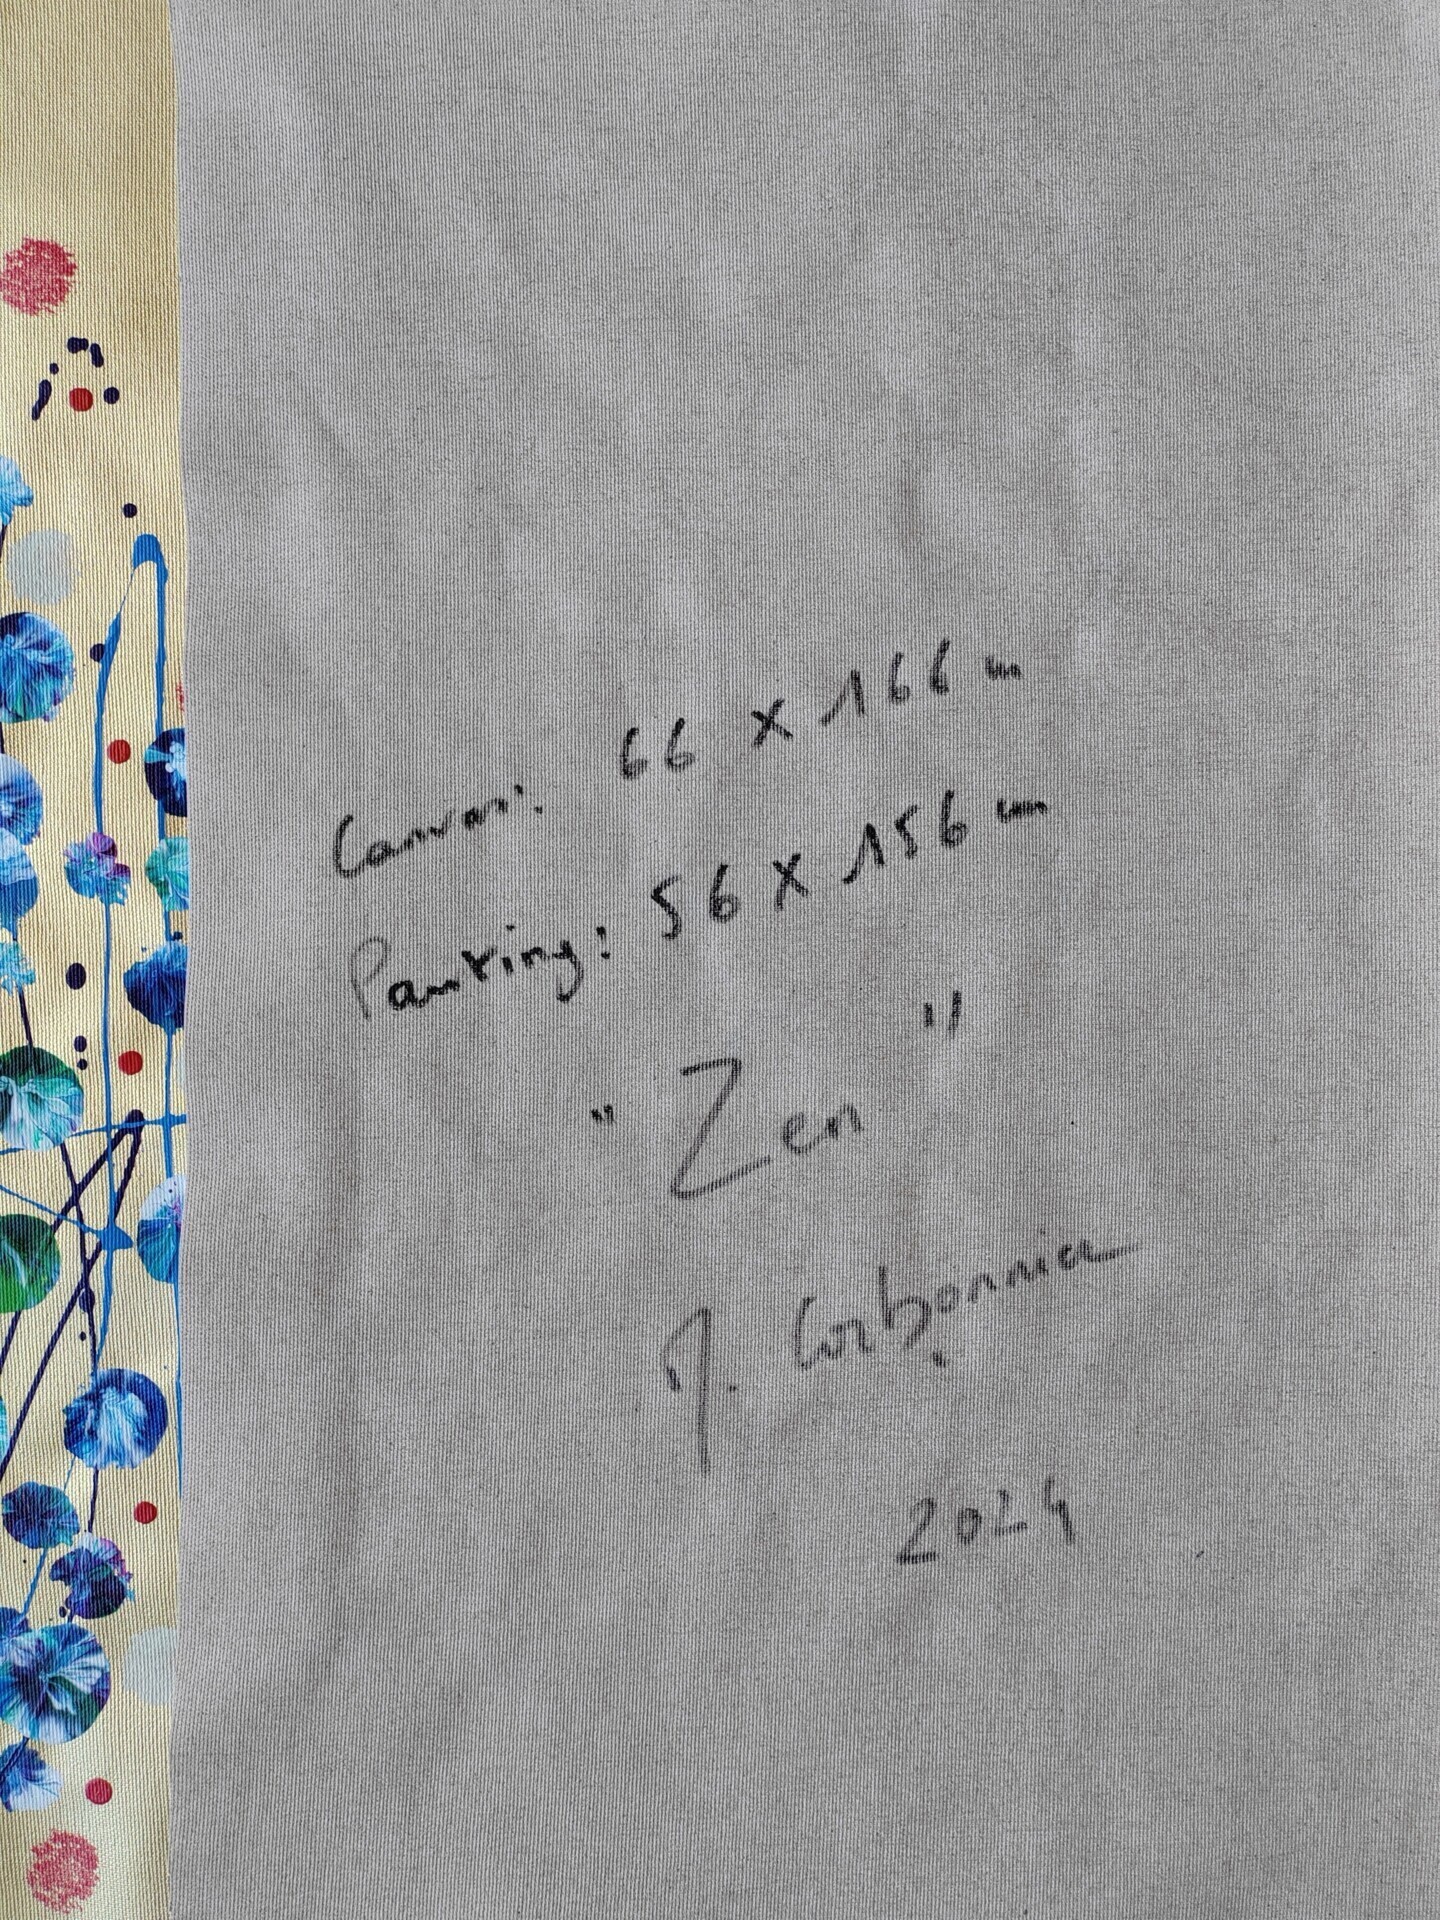 Canvas: 66 x 166 cm
Painting: 56 x 156 cm
" Zen "
2024